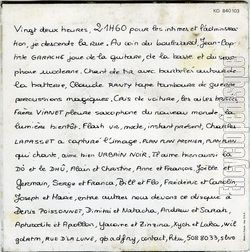 KO 840103
Vingt deux heures, 21H60 pour les intimes et l'administra-
tion, je descends la rue. Au coin du boulevard, Jean-Bap-
tiste GARACHE joue de la guitare, de la basse et du saxo-
phone nucléaire. Chant de rue avec bouteilles autour de
la batterie, Claude RANTY tape tambours de guerre
percussions magiques. Cris de voiture, les ailes
Frère VIANET pleure saxophone du nouveau monde, la
lumière bientôt. Flash vis, mote, instant présent, Charles
LAMASSET a capturé l'image. PLAN PLAN PREMIER, PLAN PLAN
qui chante, aime bien URBAIN NOIR. J'aime bien aussi la
Dô et le Dhü, Alain et Christine, Anne et François, Joëlle et
Germain, Serge et France, Bill et Flo, Frédéric et Camille
Joseph et Marc, entre autres nous devons ce disque à
Denis POISSONNET, Dimitri et Natacha, Andrew et Sarah,
Aphrodite et Apollon, Yasoire et Zinzina, Kyoh et Laka, wii
gelatin, RUE D'LA LUNE, gb adjny, contact, Rita, 508 80 39, stop